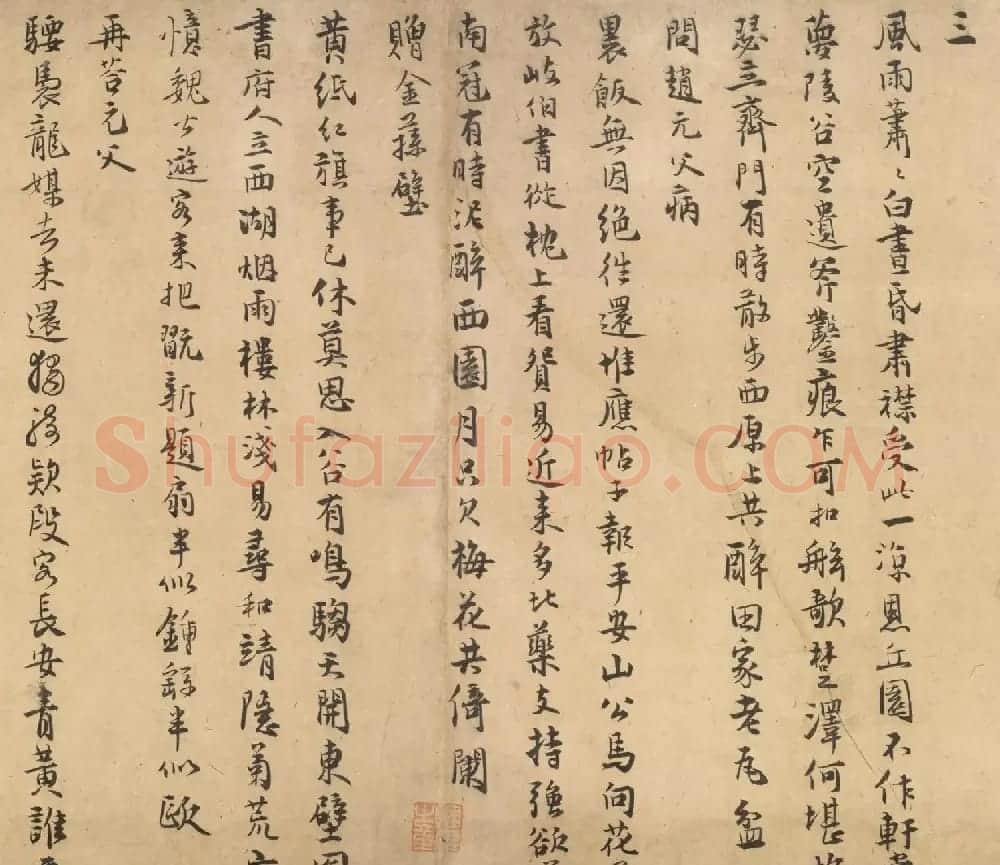 三
風雨蕭々白晝昏肅襟受此一涼恩丘園不作軒
夢陵谷空遺斧鑿痕乍可扣舷歌楚澤何堪
瑟立齊門有時散步西原上共醉田家老瓦盆
問趙元父病
裹飯無因絕往還惟應帖子報平安山公馬向花
放岐伯書從枕上看貧易近來多比藥支持強欲
南冠有時泥醉西園月只欠梅花共倚闌
贈金蓀壁
黃紙紅旗事已休莫思入谷有鳴騶天開東壁圖
書府人立西湖烟雨樓林淺易尋和靖隱菊荒
憶魏公遊客來把翫新題扇半似鍾繇半似歐
再荅元父
騕褭龍媒去未還獨殘欵段客長安青黃誰
Shufaziliao.COM